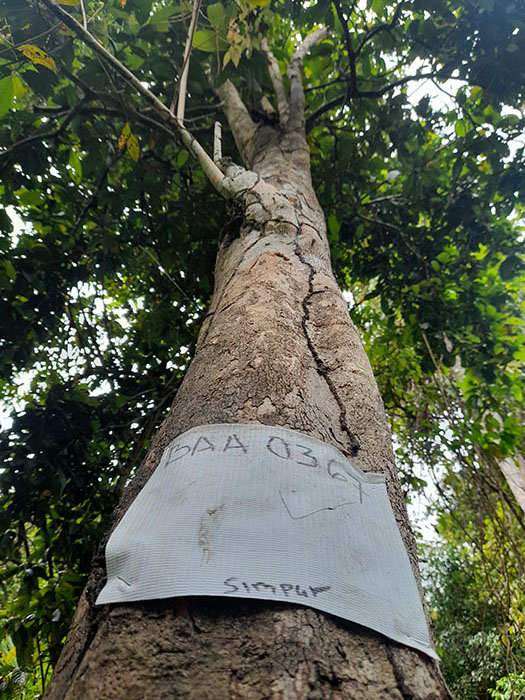 BAA 0367
Simpur